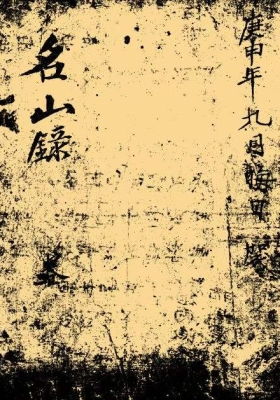 庚申年九月晦日
名山錄